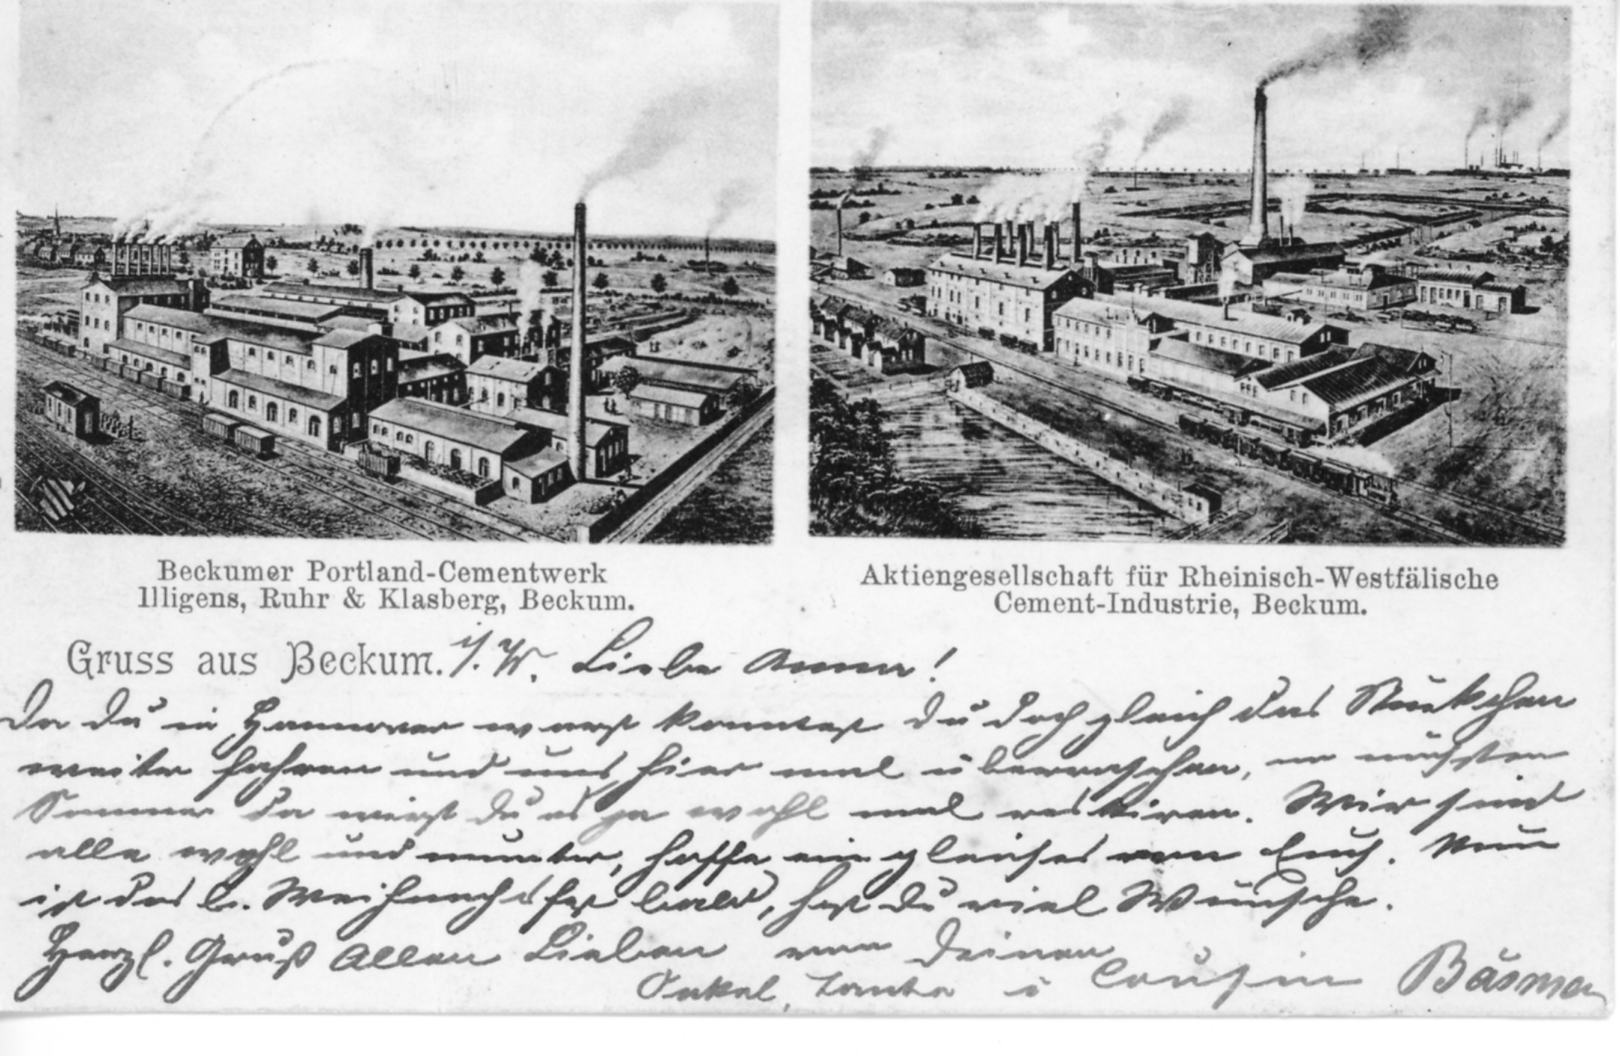 Beckumer Portland-Cementwerk
Illigens, Ruhr & Klasberg, Beckum.
Aktiengesellschaft für Rheinisch-Westfälische
Cement-Industrie, Beckum.
Gruss aus Beckum. i. W. Liebe Anna!
Da du in Hannover warst konntest du doch gleich das Stückchen
weiter fahren und uns hier mal überraschen, nächsten
Sommer da wirst du es ja wohl mal reskiren. Wir sind
alle wohl und munter, hoffe ein gleiches von Euch. Nun
ist das l. Weihnachtsfest bald, hast du viel Wünsche.
Herzl. Gruß Allen Lieben von Deinen
Onkel, Tante u Cousin